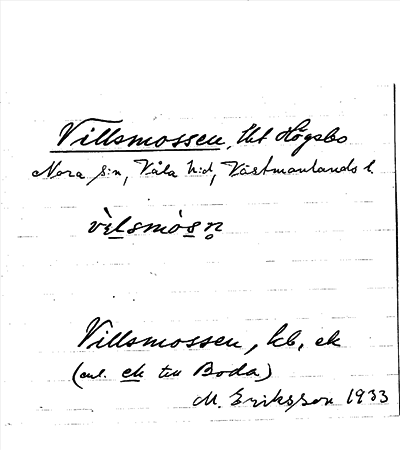 Villsmossen, tkt Högsbo
Nora s:n, Våla h:d, Västmanlands l.
vèlsmòsn̥
Villsmossen, kb, ek
(anl. ek till Boda)
M. Eriksson 1933